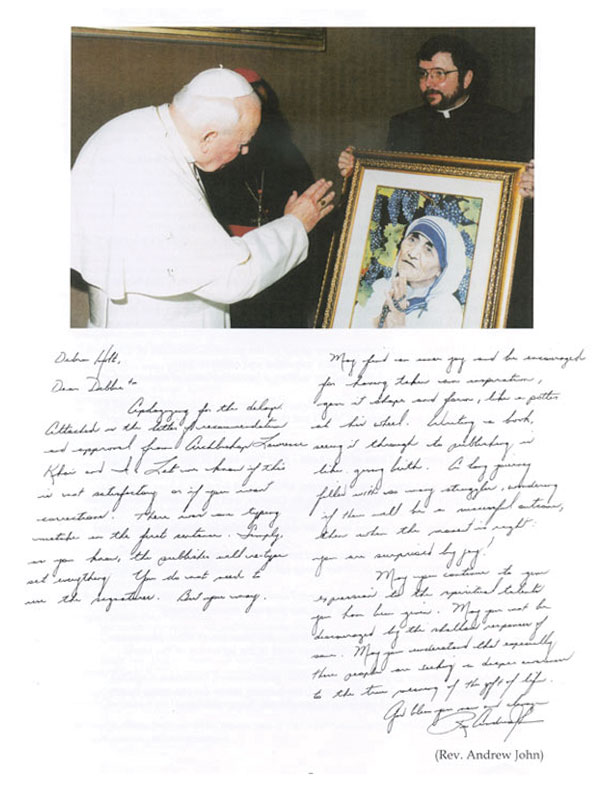 Debra Holt,
Dear Debbie
Apologizing for the delay
Attached is the letter of recommendation
and approval from Archbishop Lawrence
Khair and I. Let me know if this
is not satisfactory or if you want
corrections. There was one typing
mistake in the first sentence. Simply,
as you know, the publisher will re-type
set everything. You do not need to
use the signatures. But you may.
May find an inner joy and be encouraged
for having taken an inspiration,
given it shape and form, like a potter
at his wheel. Writing a book,
seeing it through to publishing is
like giving birth. A long journey
filled with so many struggles, wondering
if there will be a successful outcome,
then when the moment is right:
you are surprised by joy!
May you continue to give
expression to the spiritual talents
you have been given. May you not be
discouraged by the shallow responses of
some. May you understand that especially
these people are seeking a deeper
to the true meaning of the gift of life.
God bless you now and always
(Rev. Andrew John)